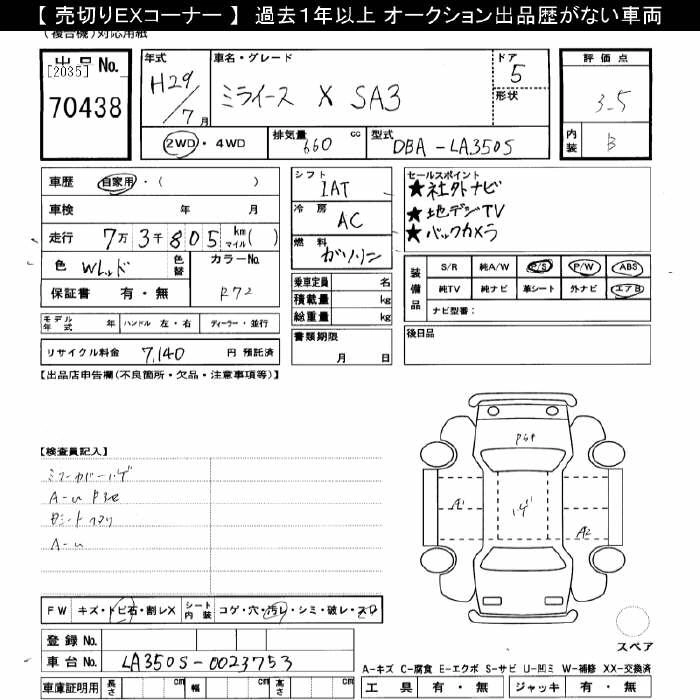 【 売切りEXコーナー 】 過去1年以上 オークション出品歴がない車両
(複合機)対応用紙
出品 No.
[2035]
70438
年式
H29/7月
車名・グレード
ミライース X SA3
ドア
5
形状
評価点
3.5
内装
B
2WD・4WD
排気量
660 cc
型式
DBA-LA350S
車歴 自家用・( )
車検 年 月
走行 7万3千805 km マイル( )
色 Wレッド 色替
カラーNo.
R72
保証書 有・無
モデル年式 年 ハンドル 左・右 ディーラー・並行
リサイクル料金 7,140 円 預託済
シフト
IAT
冷房
AC
燃料
ガソリン
乗車定員 名
積載量 kg
総重量 kg
書類期限
月 日
セールスポイント
★社外ナビ
★地デジTV
★バックカメラ
装備品
S/R 純A/W P/S P/W ABS
純TV 純ナビ 革シート 外ナビ エアB
ナビ型番:
後日品
【出品店申告欄(不良箇所・欠品・注意事項等)】
【検査員記入】
A-U
A1
A2
FW キズ・トビ石・割レX シート内装 コゲ・穴・汚レ・シミ・破レ・スレ
登録 No.
車台 No. LA350S-0023753
車庫証明用 長さ cm 幅 cm 高さ cm
スペア
A-キズ C-腐食 E-エクボ S-サビ U-凹ミ W-補修 XX-交換済
工具 有・無 ジャッキ 有・無